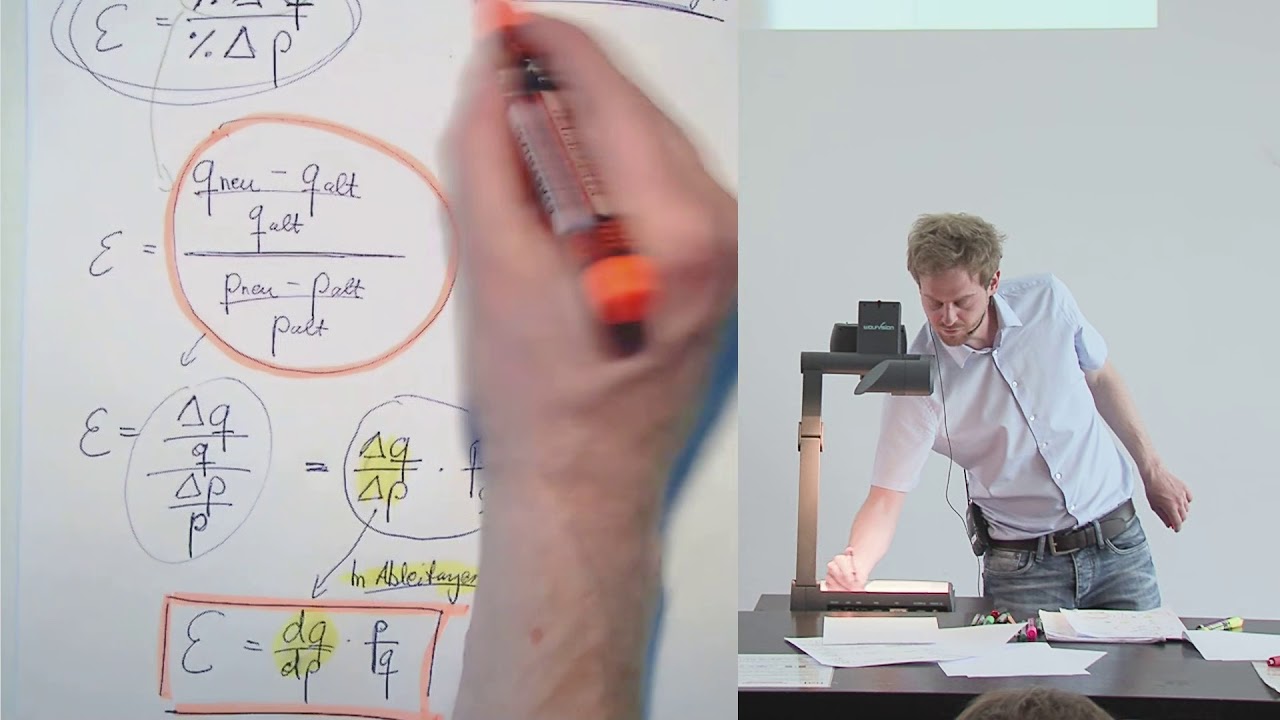 ε = %Δq
%Δp
ε = qneu - qalt
qalt
pneu - palt
palt
ε = Δq
q
Δp
p
= Δq
Δp ·
In Ableitungen
ε = dq/dp · p/q
WOLFVISION